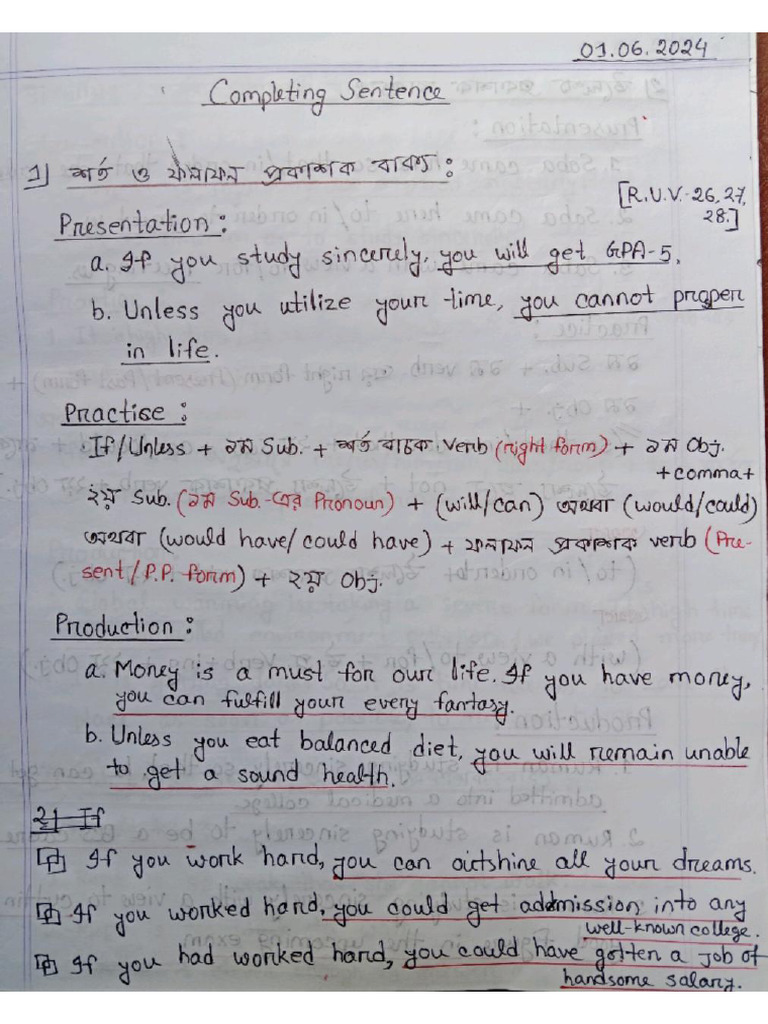 01.06.2024
Completing Sentence
১) শর্ত ও ফলাফল প্রকাশক বাক্য :
[R.U.V.-26, 27, 28.]
Presentation :
a. If you study sincerely, you will get GPA-5.
b. Unless you utilize your time, you cannot prosper
in life.
Practise :
If/Unless + ১ম Sub. + শর্ত বাচক verb (right form) + ১ম Obj.
+ comma +
২য় Sub. (১ম Sub.-এর Pronoun) + (will/can) অথবা (would/could)
অথবা (would have/could have) + ফলাফল প্রকাশক verb (Pre-
sent/P.P. form) + ২য় Obj.
Production :
a. Money is a must for our life. If you have money,
you can fulfill your every fantasy.
b. Unless you eat balanced diet, you will remain unable
to get a sound health.
২) If
If you work hard, you can outshine all your dreams.
If you worked hard, you could get admission into any
well-known college.
If you had worked hard, you could have gotten a job of
handsome salary.